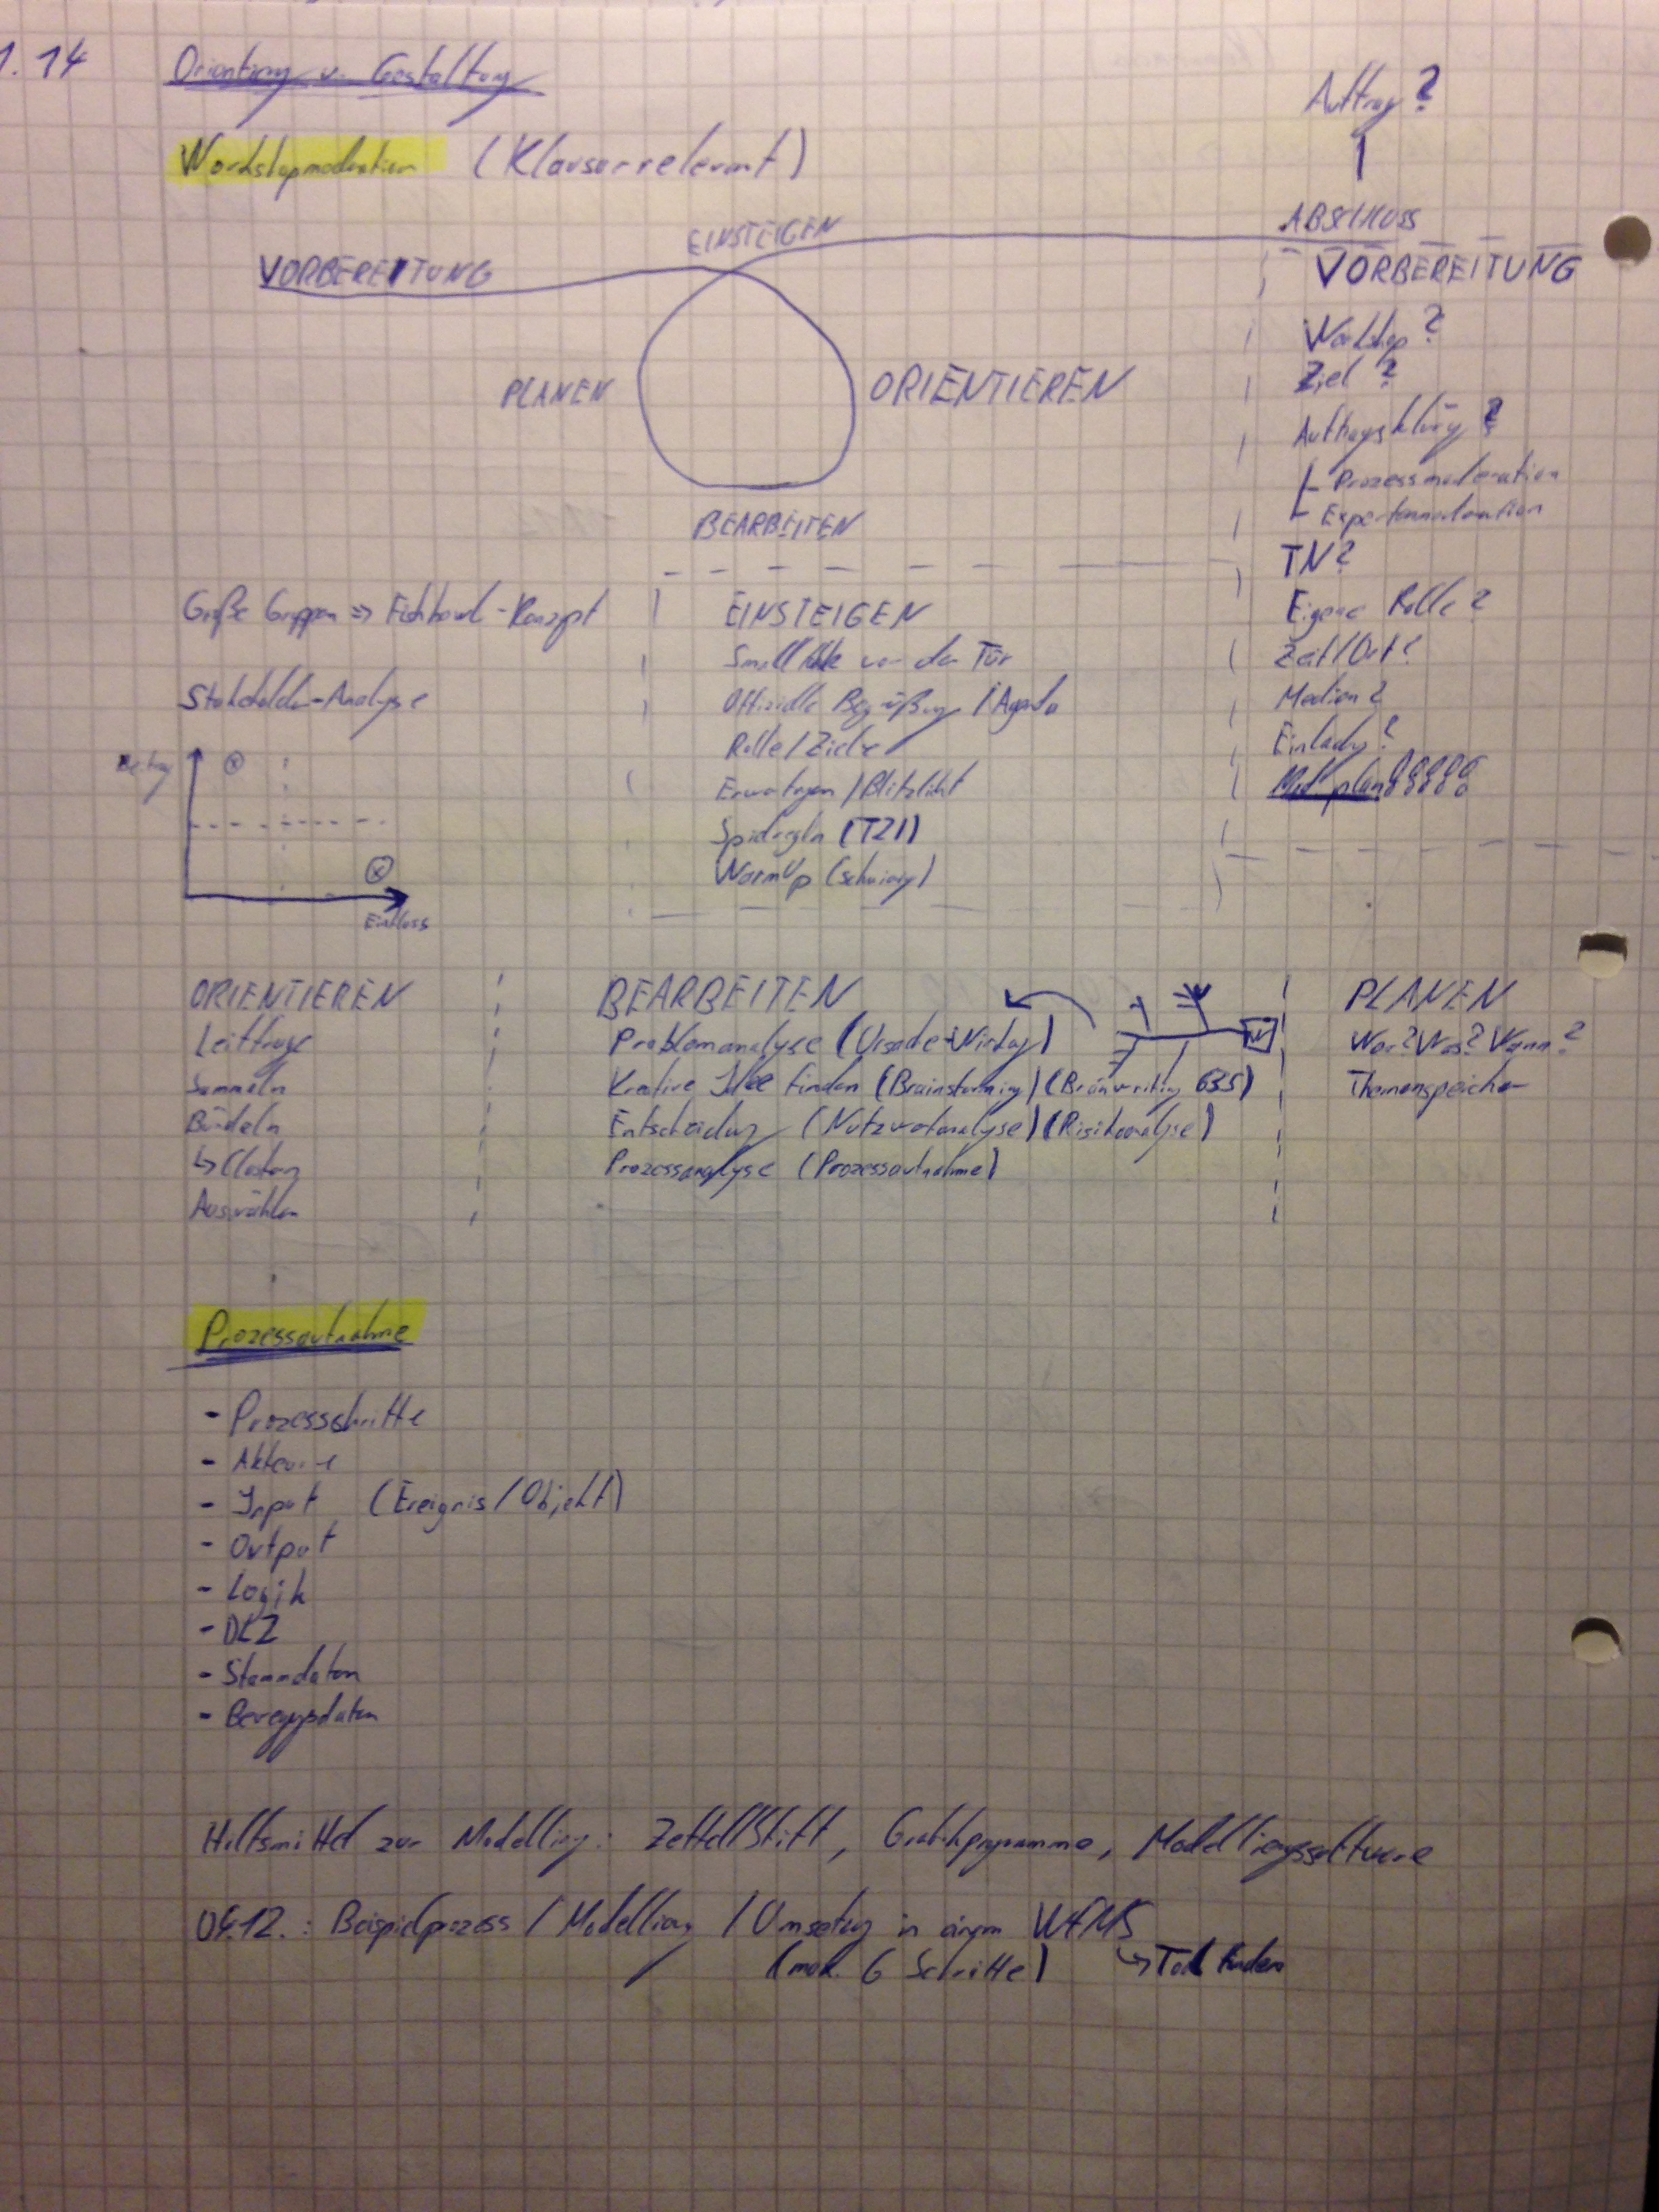 1.14
Orientierung u. Gestaltung
Auftrag?
Workshopmoderation (Klausurrelevant)
EINSTEIGEN
ABSCHLUSS
VORBEREITUNG
VORBEREITUNG
Workshop?
Ziel?
PLANEN
ORIENTIEREN
Auftragsklärung?
Prozessmoderation
Expertenmoderation
BEARBEITEN
TN?
Eigene Rolle?
Zeit/Ort?
Medien?
Einladung?
Mod.plan
Große Gruppen => Fishbowl-Konzept
Stakeholder-Analyse
Einfluss
EINSTEIGEN
Smalltalk vor der Tür
Offizielle Begrüßung / Agenda
Rolle/Ziele
Erwartungen / Blitzlicht
Spielregeln (TZI)
WarmUp (schwierig)
ORIENTIEREN
Leitfrage
Sammeln
Bündeln
↳ Clustern
Auswählen
BEARBEITEN
Problemanalyse (Ursache-Wirkung)
Kreative Idee finden (Brainstorming) (Brainwriting 635)
Entscheidung (Nutzwertanalyse) (Risikoanalyse)
Prozessanalyse (Prozessaufnahme)
PLANEN
Wer? Was? Wann?
Themenspeicher
Prozessaufnahme
- Prozessschritte
- Akteure
- Input (Ereignis/Objekt)
- Output
- Logik
- DLZ
- Stammdaten
- Bewegungsdaten
Hilfsmittel zur Modellierung: Zettel/Stift, Grafikprogramme, Modellierungssoftware
04.12.: Beispielprozess / Modellierung / Umsetzung in einem WfMS
(max. 6 Schritte) ↳ Tool finden